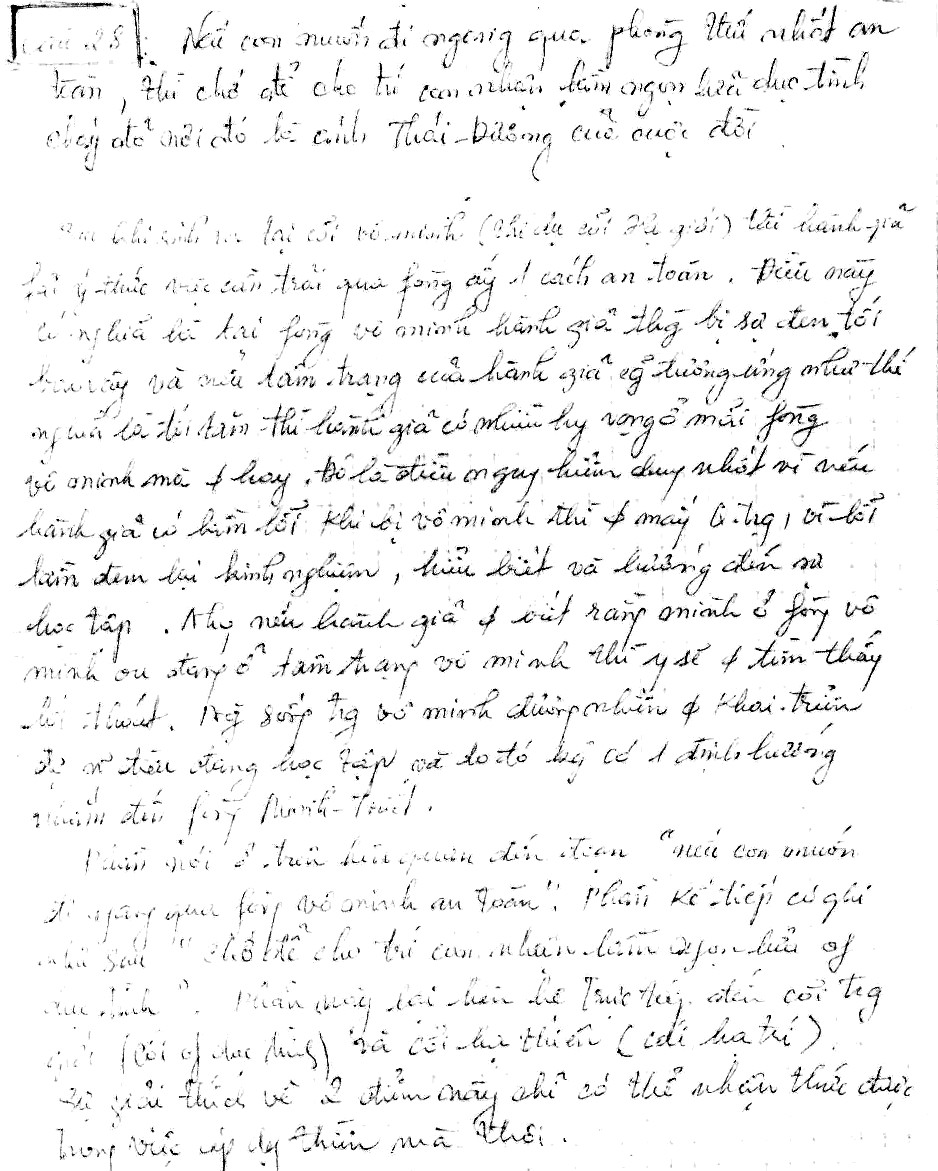 Câu 28: Nếu con muốn đi ngang qua phòng thứ nhất an
toàn, thì chớ để cho trí con nhận lầm ngọn lửa dục tình
cháy đỏ nơi đó là ánh Thái-Dương của cuộc đời
khi sinh ra tại cõi vô minh (thí dụ cõi Hạ giới) thì hành giả
fải ý thức việc cần trải qua fòng ấy 1 cách an toàn. Điều này
có nghĩa là tại fòng vô minh hành giả thg bị sự đen tối
bao vây và nếu tâm trạng của hành giả cg tương ứng như thế
nghĩa là tối tăm thì hành giả có nhiều hy vọng ở mãi fòng
vô minh mà ɸ hay. Đó là điều nguy hiểm duy nhất vì nếu
hành giả có lầm lỗi khi bị vô minh thì ɸ mấy q.trg, vì lỗi
lầm đem lại kinh nghiệm, hiểu biết và hướng đến sự
học tập. Nhg nếu hành giả ɸ biết rằng mình ở fòng vô
minh or đang ở tâm trạng vô minh thì y sẽ ɸ tìm thấy
lối thoát. Ng sống trg vô minh đương nhiên ɸ khai triển
đc đang học tập và do đó hg có 1 định hướng
nhắm đến fòng Minh-Triết.
Phần nói ở trên liên quan đến đoạn "nếu con muốn
đi ngang qua fòng vô minh an toàn". Phần kế tiếp có ghi
như sau "chớ để cho trí con nhận lầm ngọn lửa of
dục tình". Phần này lại liên hệ trực tiếp đến cõi trg
giới (cõi of dục tình) và cõi hạ thiên (cõi hạ trí)
Sự giải thích về 2 điểm này chỉ có thể nhận thức được
trong việc áp dg thiền mà thôi.